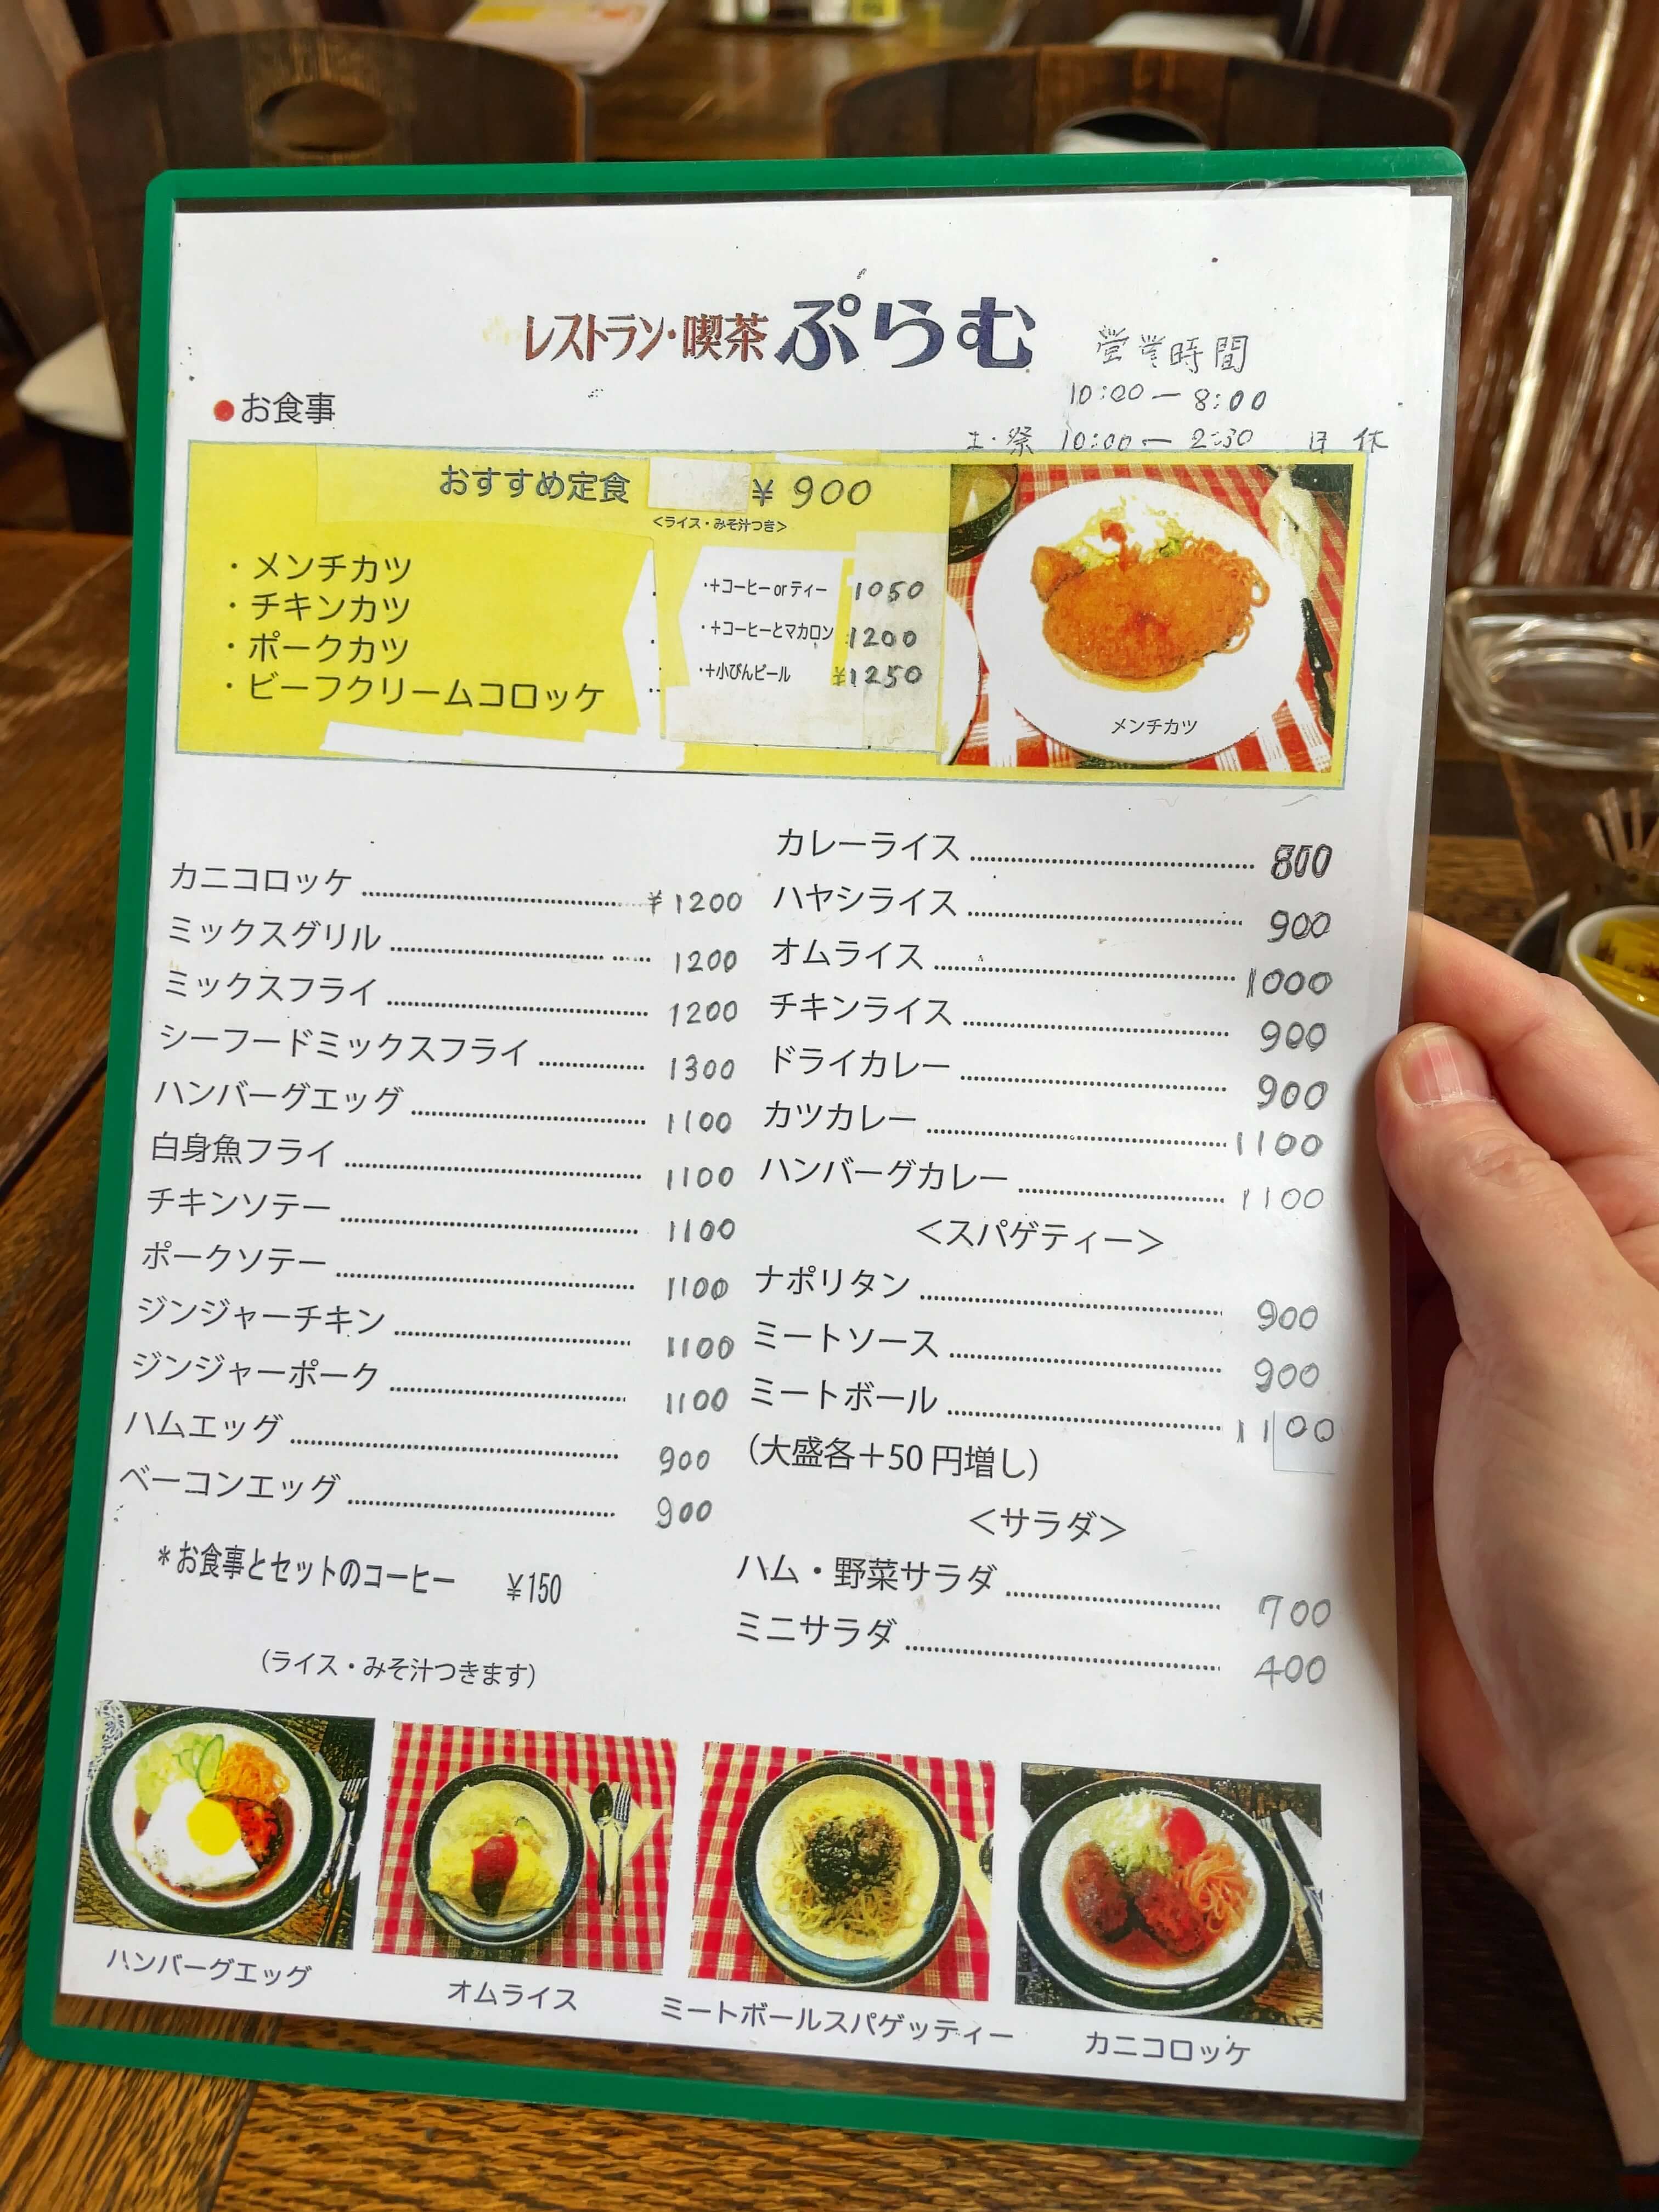 レストラン・喫茶 ぷらむ
営業時間
10:00ー8:00
土・祭 10:00ー2:30 日 休
●お食事
おすすめ定食 ¥900
<ライス・みそ汁つき>
・メンチカツ
・チキンカツ
・ポークカツ
・ビーフクリームコロッケ
・+コーヒー or ティー 1050
・+コーヒーとマカロン 1200
・+小びんビール ¥1250
メンチカツ
カニコロッケ ¥1200
ミックスグリル 1200
ミックスフライ 1200
シーフードミックスフライ 1300
ハンバーグエッグ 1100
白身魚フライ 1100
チキンソテー 1100
ポークソテー 1100
ジンジャーチキン 1100
ジンジャーポーク 1100
ハムエッグ 900
ベーコンエッグ 900
*お食事とセットのコーヒー ¥150
(ライス・みそ汁つきます)
カレーライス
ハヤシライス 900
オムライス 1000
チキンライス 900
ドライカレー 900
カツカレー 1100
ハンバーグカレー 1100
<スパゲティー>
ナポリタン 900
ミートソース 900
ミートボール 1100
(大盛各+50円増し)
<サラダ>
ハム・野菜サラダ 700
ミニサラダ 400
ハンバーグエッグ
オムライス
ミートボールスパゲッティー
カニコロッケ